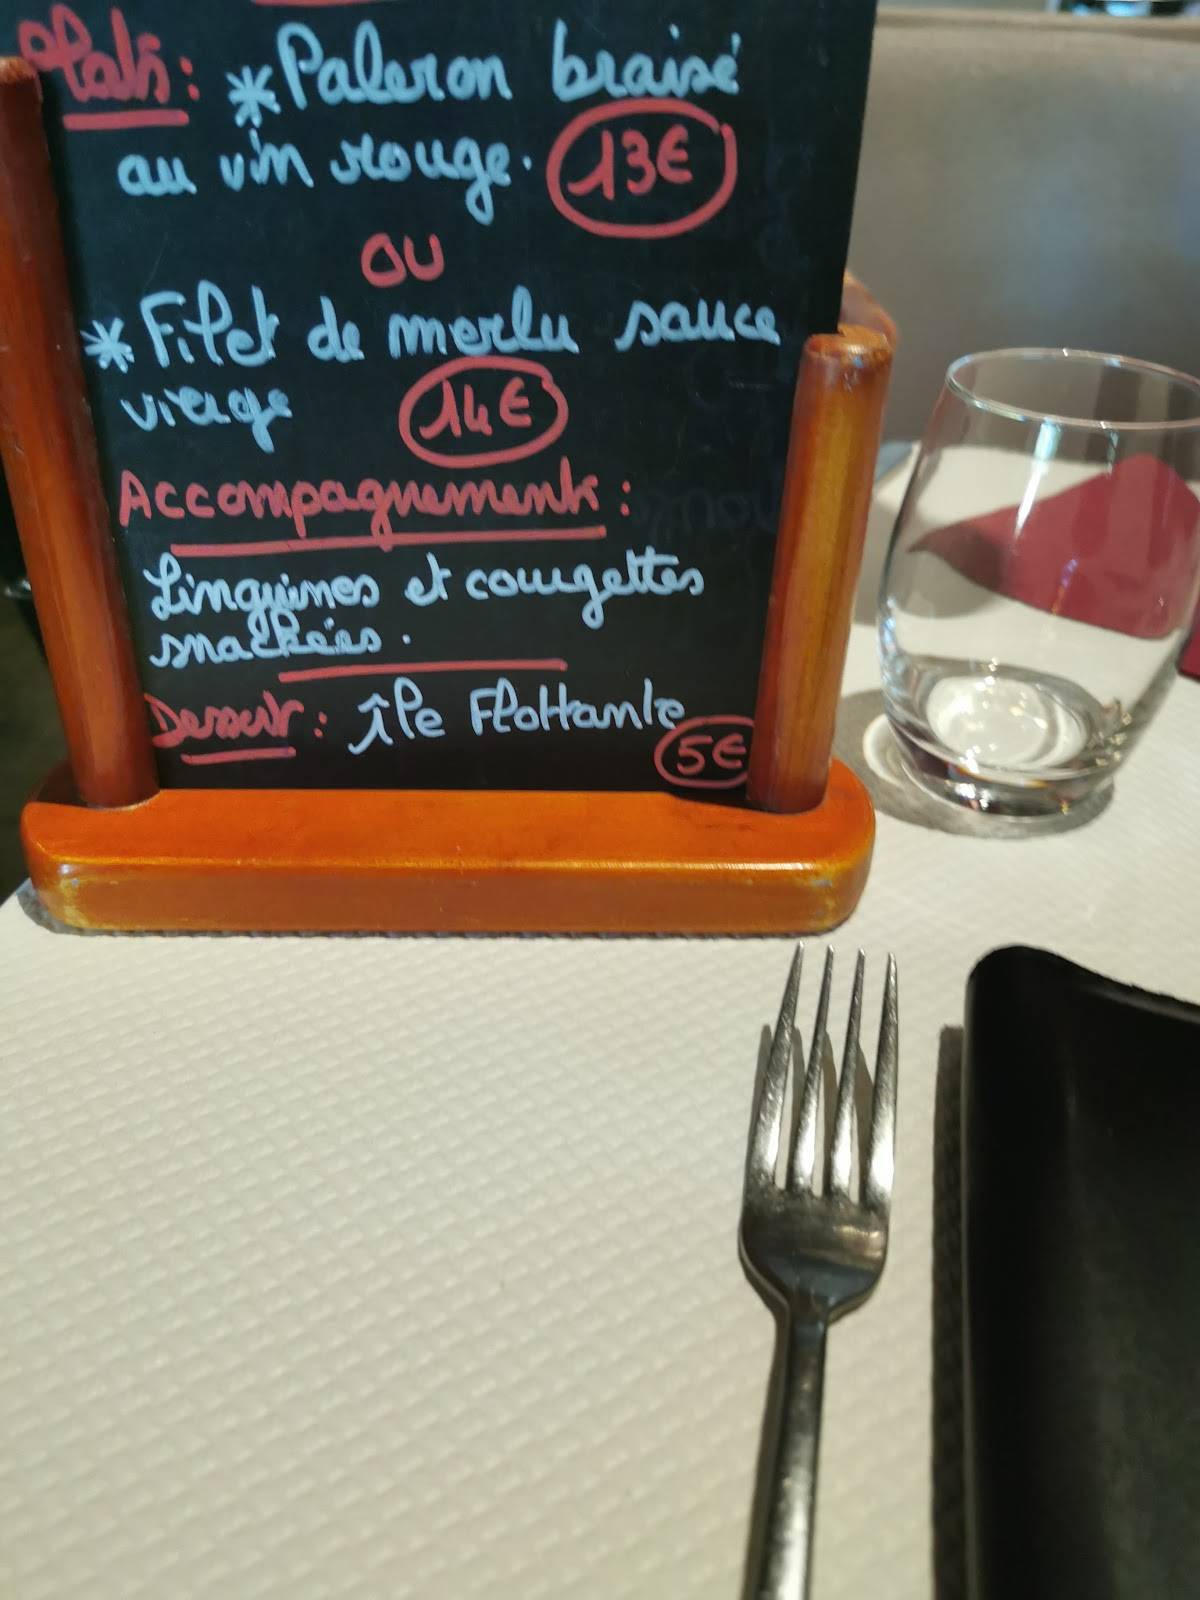 Plats : * Paleron braisé
au vin rouge. 13€
OU
* Filet de merlu sauce
vierge 14€
Accompagnements :
Linguines et courgettes
snackées.
Dessert : Île Flottante
5€